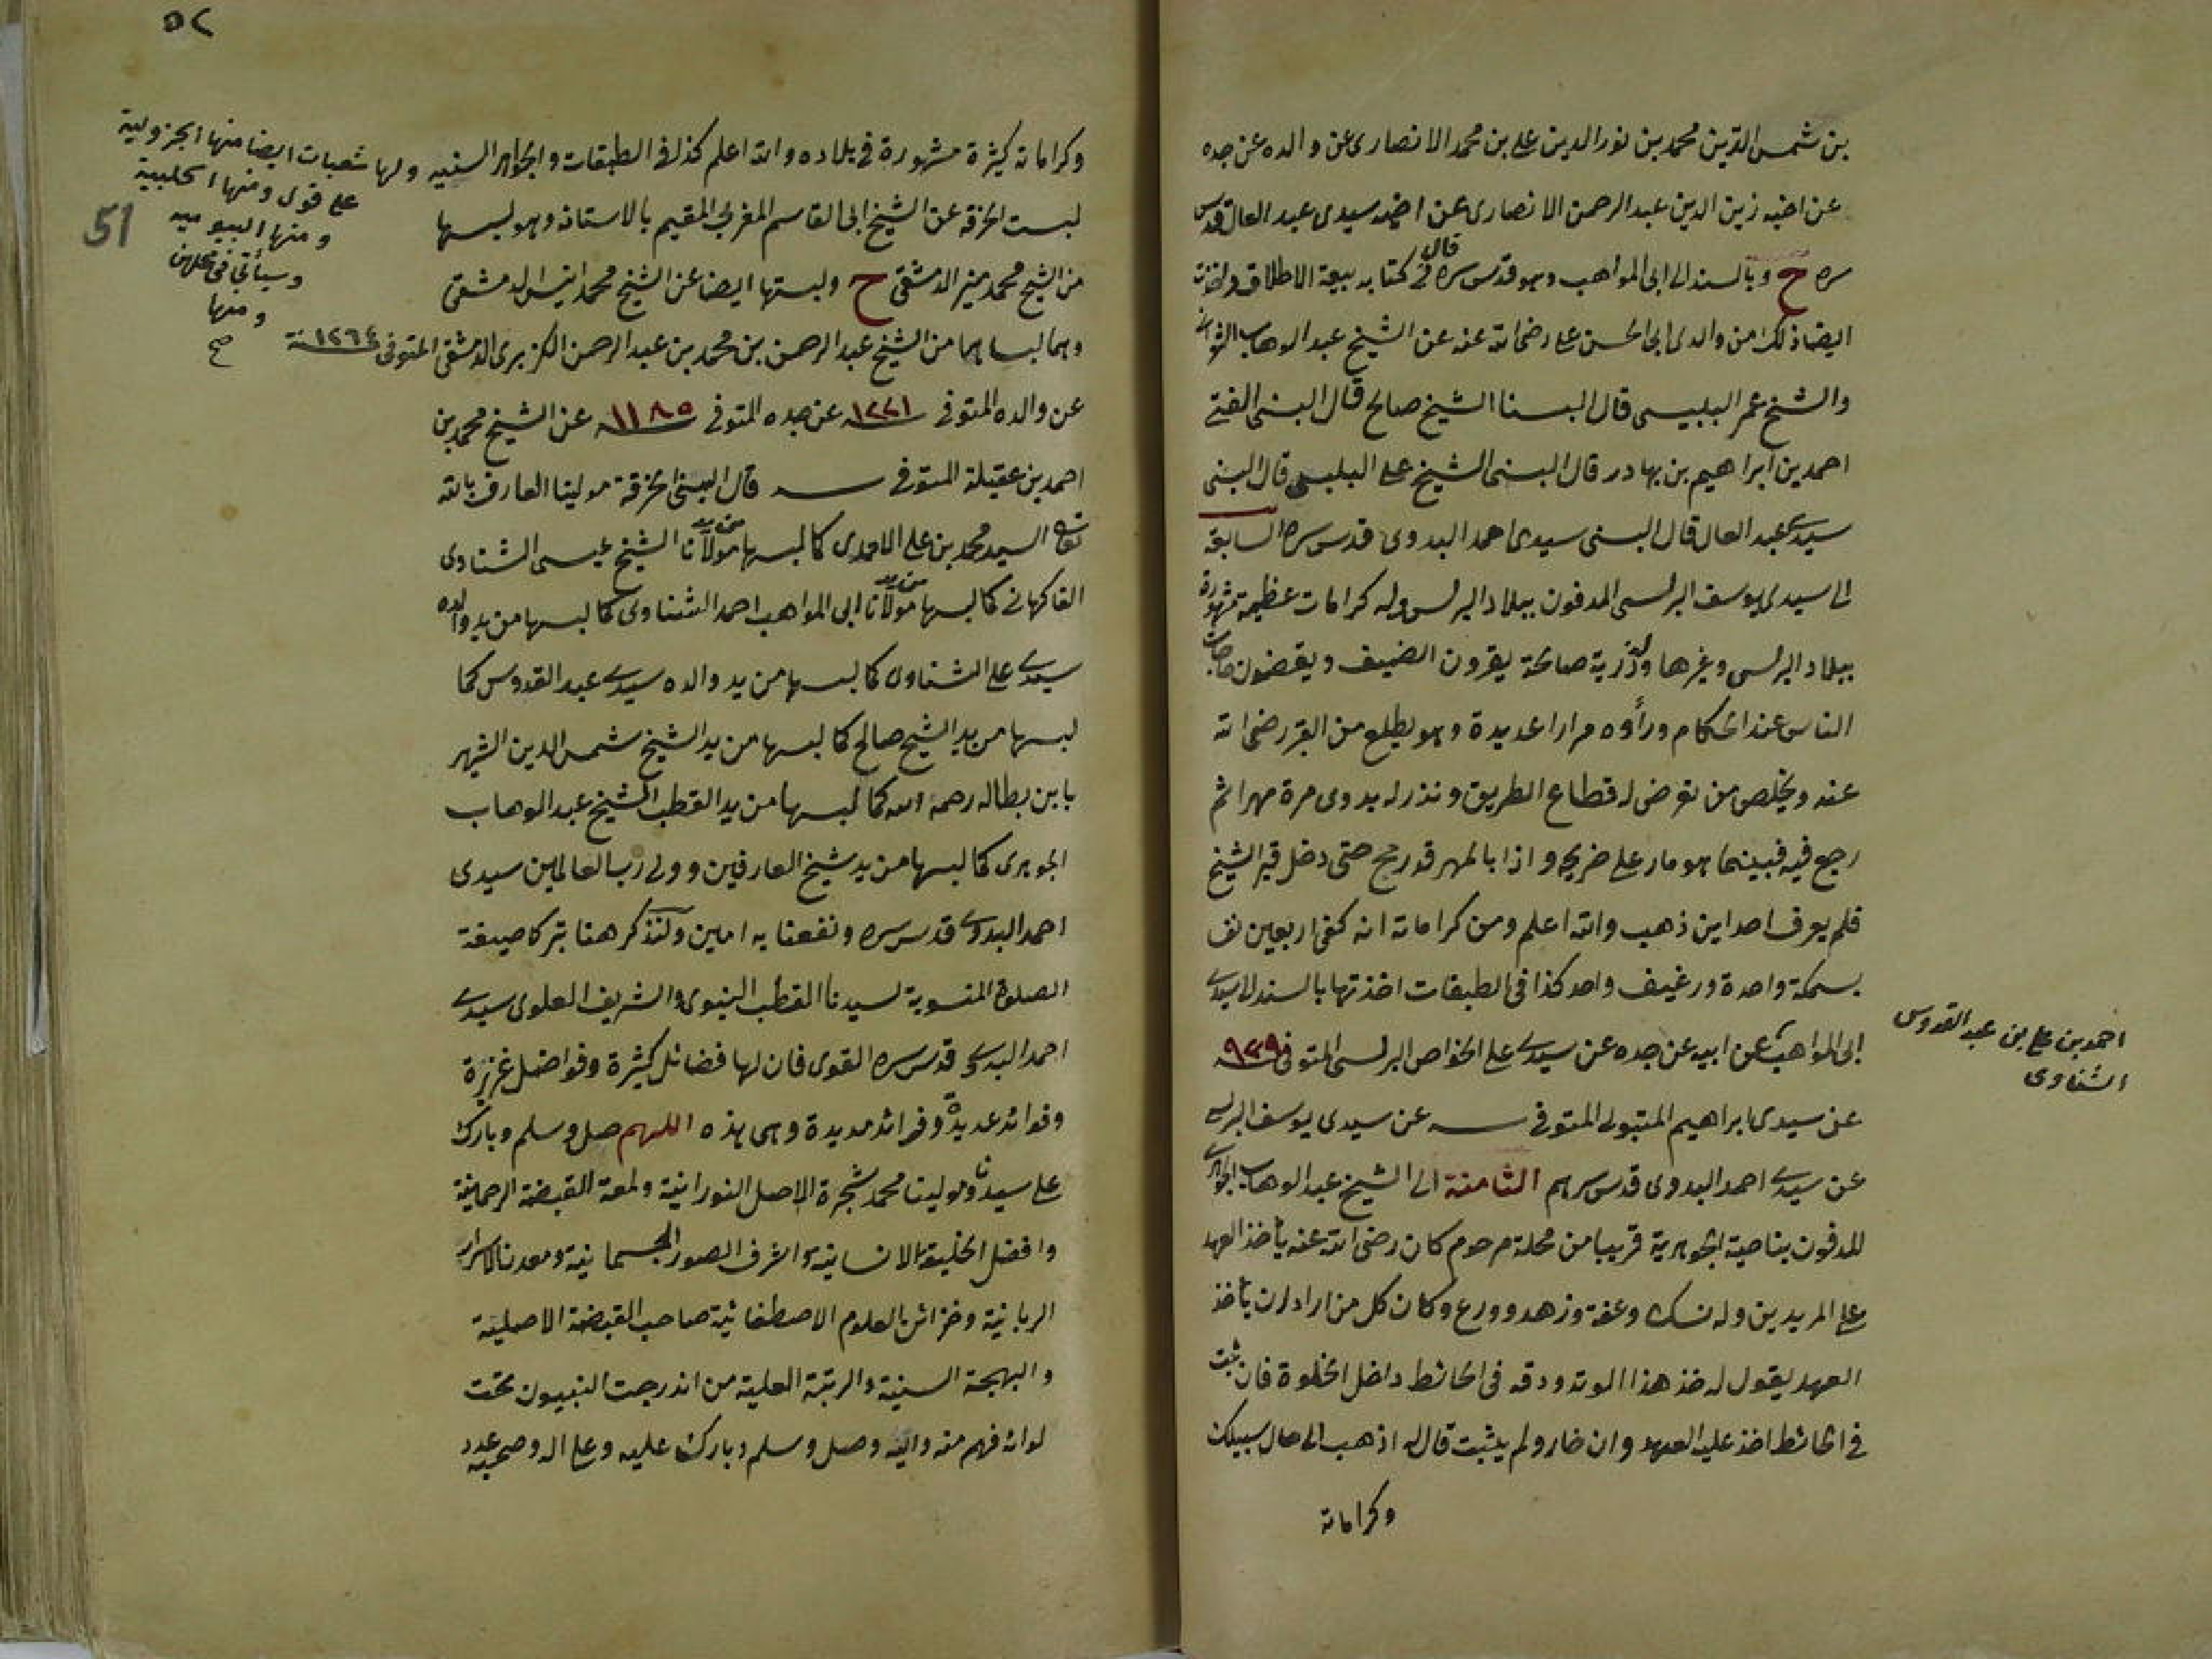 بن شمس الدين محمد بن نور الدين علي بن محمد الانصارى عن والده عن جده
عن اخيه زين الدين عبد الرحمن الانصارى عن اخيه سيدى عبد العال قدس
سره ح وبالسند الى ابى المواهب وهو قدس سره قال فى كتابه بيعة الاطلاق
ايضا ذلك من والدى ابى الحسن على رضى الله عنه عن الشيخ عبد الوهاب
والشيخ عمر البلبيسى قال البسنا الشيخ صالح قال البسنى الفتى
احمد بن ابراهيم بن بهادر قال البسنى الشيخ على البلبيسى قال البسنى
سيدى عبد العال قال البسنى سيدى احمد البدوى قدس سره السابعة
الى سيدى يوسف البرلسى المدفون ببلاد البرلس وله كرامات عظيمة مشهورة
ببلاد البرلس وغيرها وله ذرية صالحة يقرون الضيف ويقضون حاجات
الناس عند الحكام ورأوه مرارا عديدة وهو يطلع من القبر رضى الله
عنه ويخلص من تعرض له قطاع الطريق ونذر له بدوى مرة مهرا ثم
رجع فيه فبينما هو مار على ضريحه واذا بالمهر قد رمح حتى دخل قبر الشيخ
فلم يعرف احد اين ذهب والله اعلم ومن كراماته انه كفى اربعين نفسا
بسمكة واحدة ورغيف واحد كذا فى الطبقات اخذتها بالسند الى سيدى
ابى المواهب عن ابيه عن جده عن سيدى على الخواص البرلسى المتوفى ٩٣٩
احمد بن على بن عبد القدوس
الشناوى
عن سيدى ابراهيم المتبولى المتوفى سنه عن سيدى يوسف البرلسى
عن سيدى احمد البدوى قدس سرهم الثامنة الى الشيخ عبد الوهاب الجوهرى
المدفون بناحية الجوهرية قريبا من محلة مرحوم كان رضى الله عنه يأخذ العهد
على المريدين وله نسك وعفة وزهد وورع وكان كل من اراد ان يأخذ
العهد يقول له خذ هذا الوتد ودقه فى الحائط داخل الخلوة فان ثبت
فى الحائط اخذ عليه العهد وان خار ولم يثبت قال له اذهب الى حال سبيلك
وكراماته
٥٢
51
وكراماته كثيرة مشهورة فى بلاده والله اعلم كذا فى الطبقات والجواهر السنيه ولها شعبات ايضا منها الجزولية
على قول ومنها الحلبية
ومنها البيوميه
وسيأتى فى محلهن
ومنها
صح
لبست الخرقة عن الشيخ ابى القاسم المغربى المقيم بالاستانه وهو لبسها
من الشيخ محمد منير الدمشقى ح ولبستها ايضا عن الشيخ محمد انيس الدمشقى
وهما لبساها من الشيخ عبد الرحمن بن محمد بن عبد الرحمن الكزبرى الدمشقى المتوفى سنة ١٢٦٤
عن والده المتوفى سنه ١٢٢١ عن جده المتوفى سنه ١١٨٥ عن الشيخ محمد بن
احمد بن عقيلة المتوفى سنه قال البسنى الخرقة مولينا العارف بالله
تعالى السيد محمد بن على الاحمدى كما لبسها من يد مولانا الشيخ عيسى الشناوى
الفاكهانى كما لبسها من يد مولانا ابى المواهب احمد الشناوى كما لبسها من يد والده
سيدى على الشناوى كما لبسها من يد والده سيدى عبد القدوس كما
لبسها من يد الشيخ صالح كما لبسها من يد الشيخ شمس الدين الشهير
بابن بطاله رحمه الله كما لبسها من يد القطب الشيخ عبد الوهاب
الجوهرى كما لبسها من يد شيخ العارفين وولى رب العالمين سيدى
احمد البدوى قدس سره ونفعنا به امين ولنذكر هنا تبركا صيغة
الصلوة المنسوبة لسيدنا القطب النبوى والشريف العلوى سيدى
احمد البدوى قدس سره القوى فان لها فضائل كثيرة وفواضل غزيرة
وفوائد عديدة وفرائد مديدة وهى هذه اللهم صل وسلم وبارك
على سيدنا ومولينا محمد شجرة الاصل النورانية ولمعة القبضة الرحمانية
وافضل الخليقة الانسانية واشرف الصور الجسمانية ومعدن الاسرار
الربانية وخزائن العلوم الاصطفائية صاحب القبضة الاصلية
والبهجة السنية والرتبة العلية من اندرجت النبيون تحت
لوائه فهم منه واليه وصل وسلم وبارك عليه وعلى اله وصحبه عدد